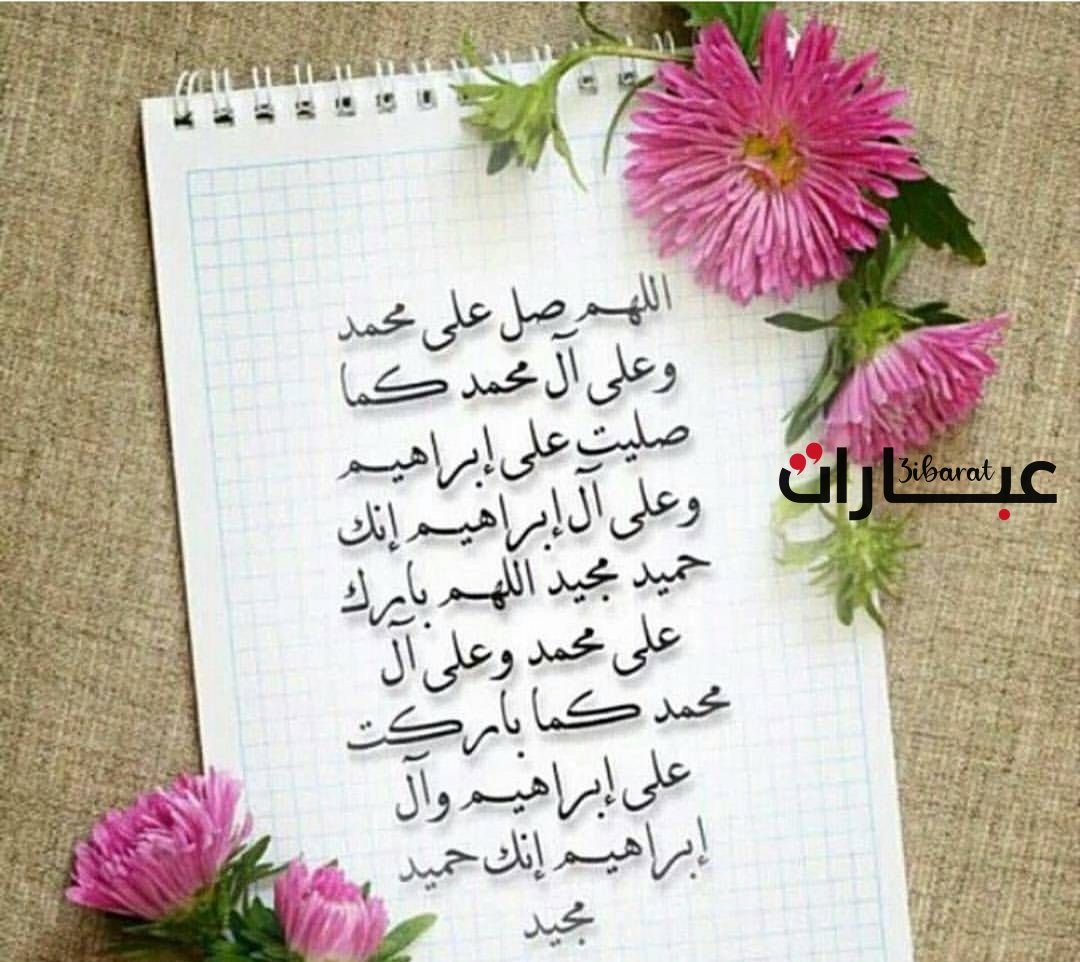 اللهم صل على محمد
وعلى آل محمد كما
صليت على إبراهيم
وعلى آل إبراهيم إنك
حميد مجيد اللهم بارك
على محمد وعلى آل
محمد كما باركت
على إبراهيم وآل
إبراهيم إنك حميد
مجيد
عبارات
3ibarat